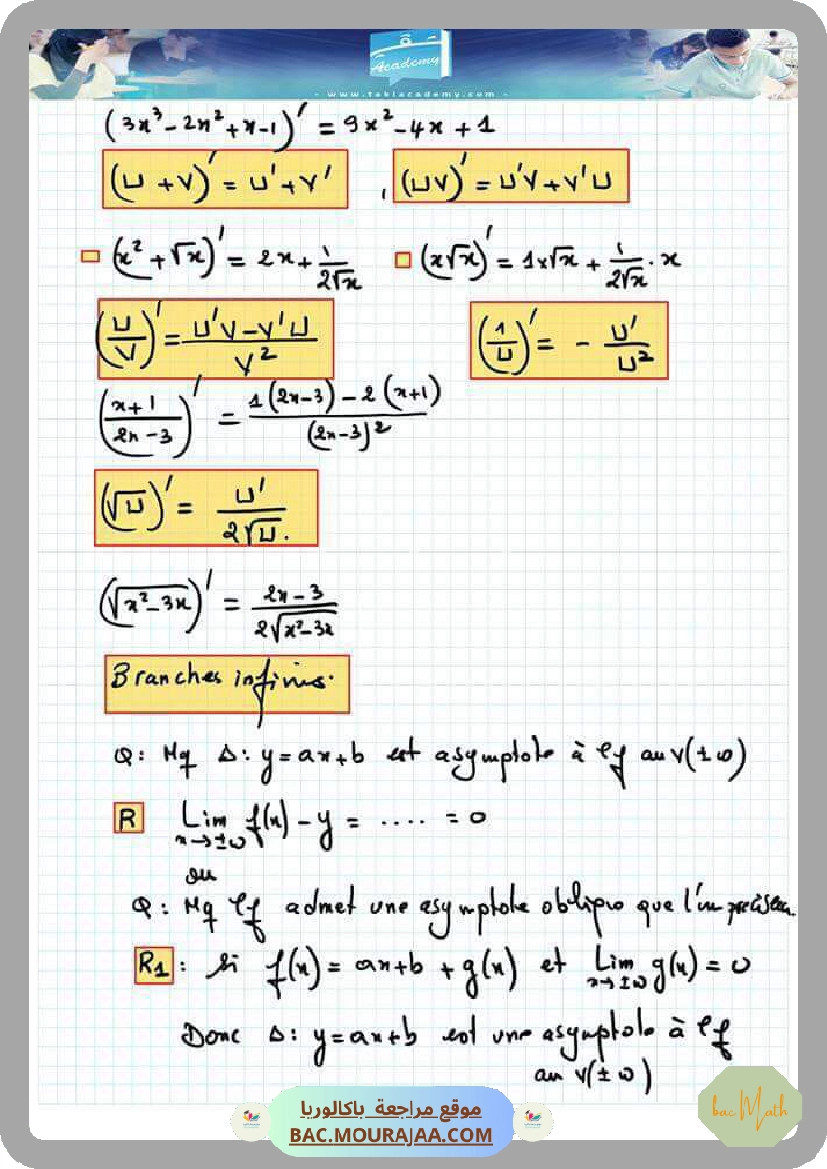 Academy
- www.takiacademy.com -
(3x³ - 2x² + x - 1)' = 9x² - 4x + 1
(U + V)' = U' + V' , (UV)' = U'V + V'U
(x² + √x)' = 2x + 1/(2√x) (x√x)' = 1×√x + 1/(2√x) · x
(U/V)' = (U'V - V'U)/V² (1/U)' = - U'/U²
((x+1)/(2x-3))' = (1(2x-3) - 2(x+1))/(2x-3)²
(√U)' = U'/(2√U).
(√(x²-3x))' = (2x-3)/(2√(x²-3x))
Branches infinies.
Q: Mq Δ: y = ax+b est asymptote à ζf au v(±∞)
R Lim x→±∞ f(x) - y = .... = 0
ou
Q: Mq ζf admet une asymptote oblique que l'on précisera
R1: Si f(x) = ax+b + g(x) et Lim x→±∞ g(x) = 0
Donc Δ: y = ax+b est une asymptote à ζf
au v(±∞)
موقع مراجعة باكالوريا
BAC.MOURAJAA.COM
bac Math